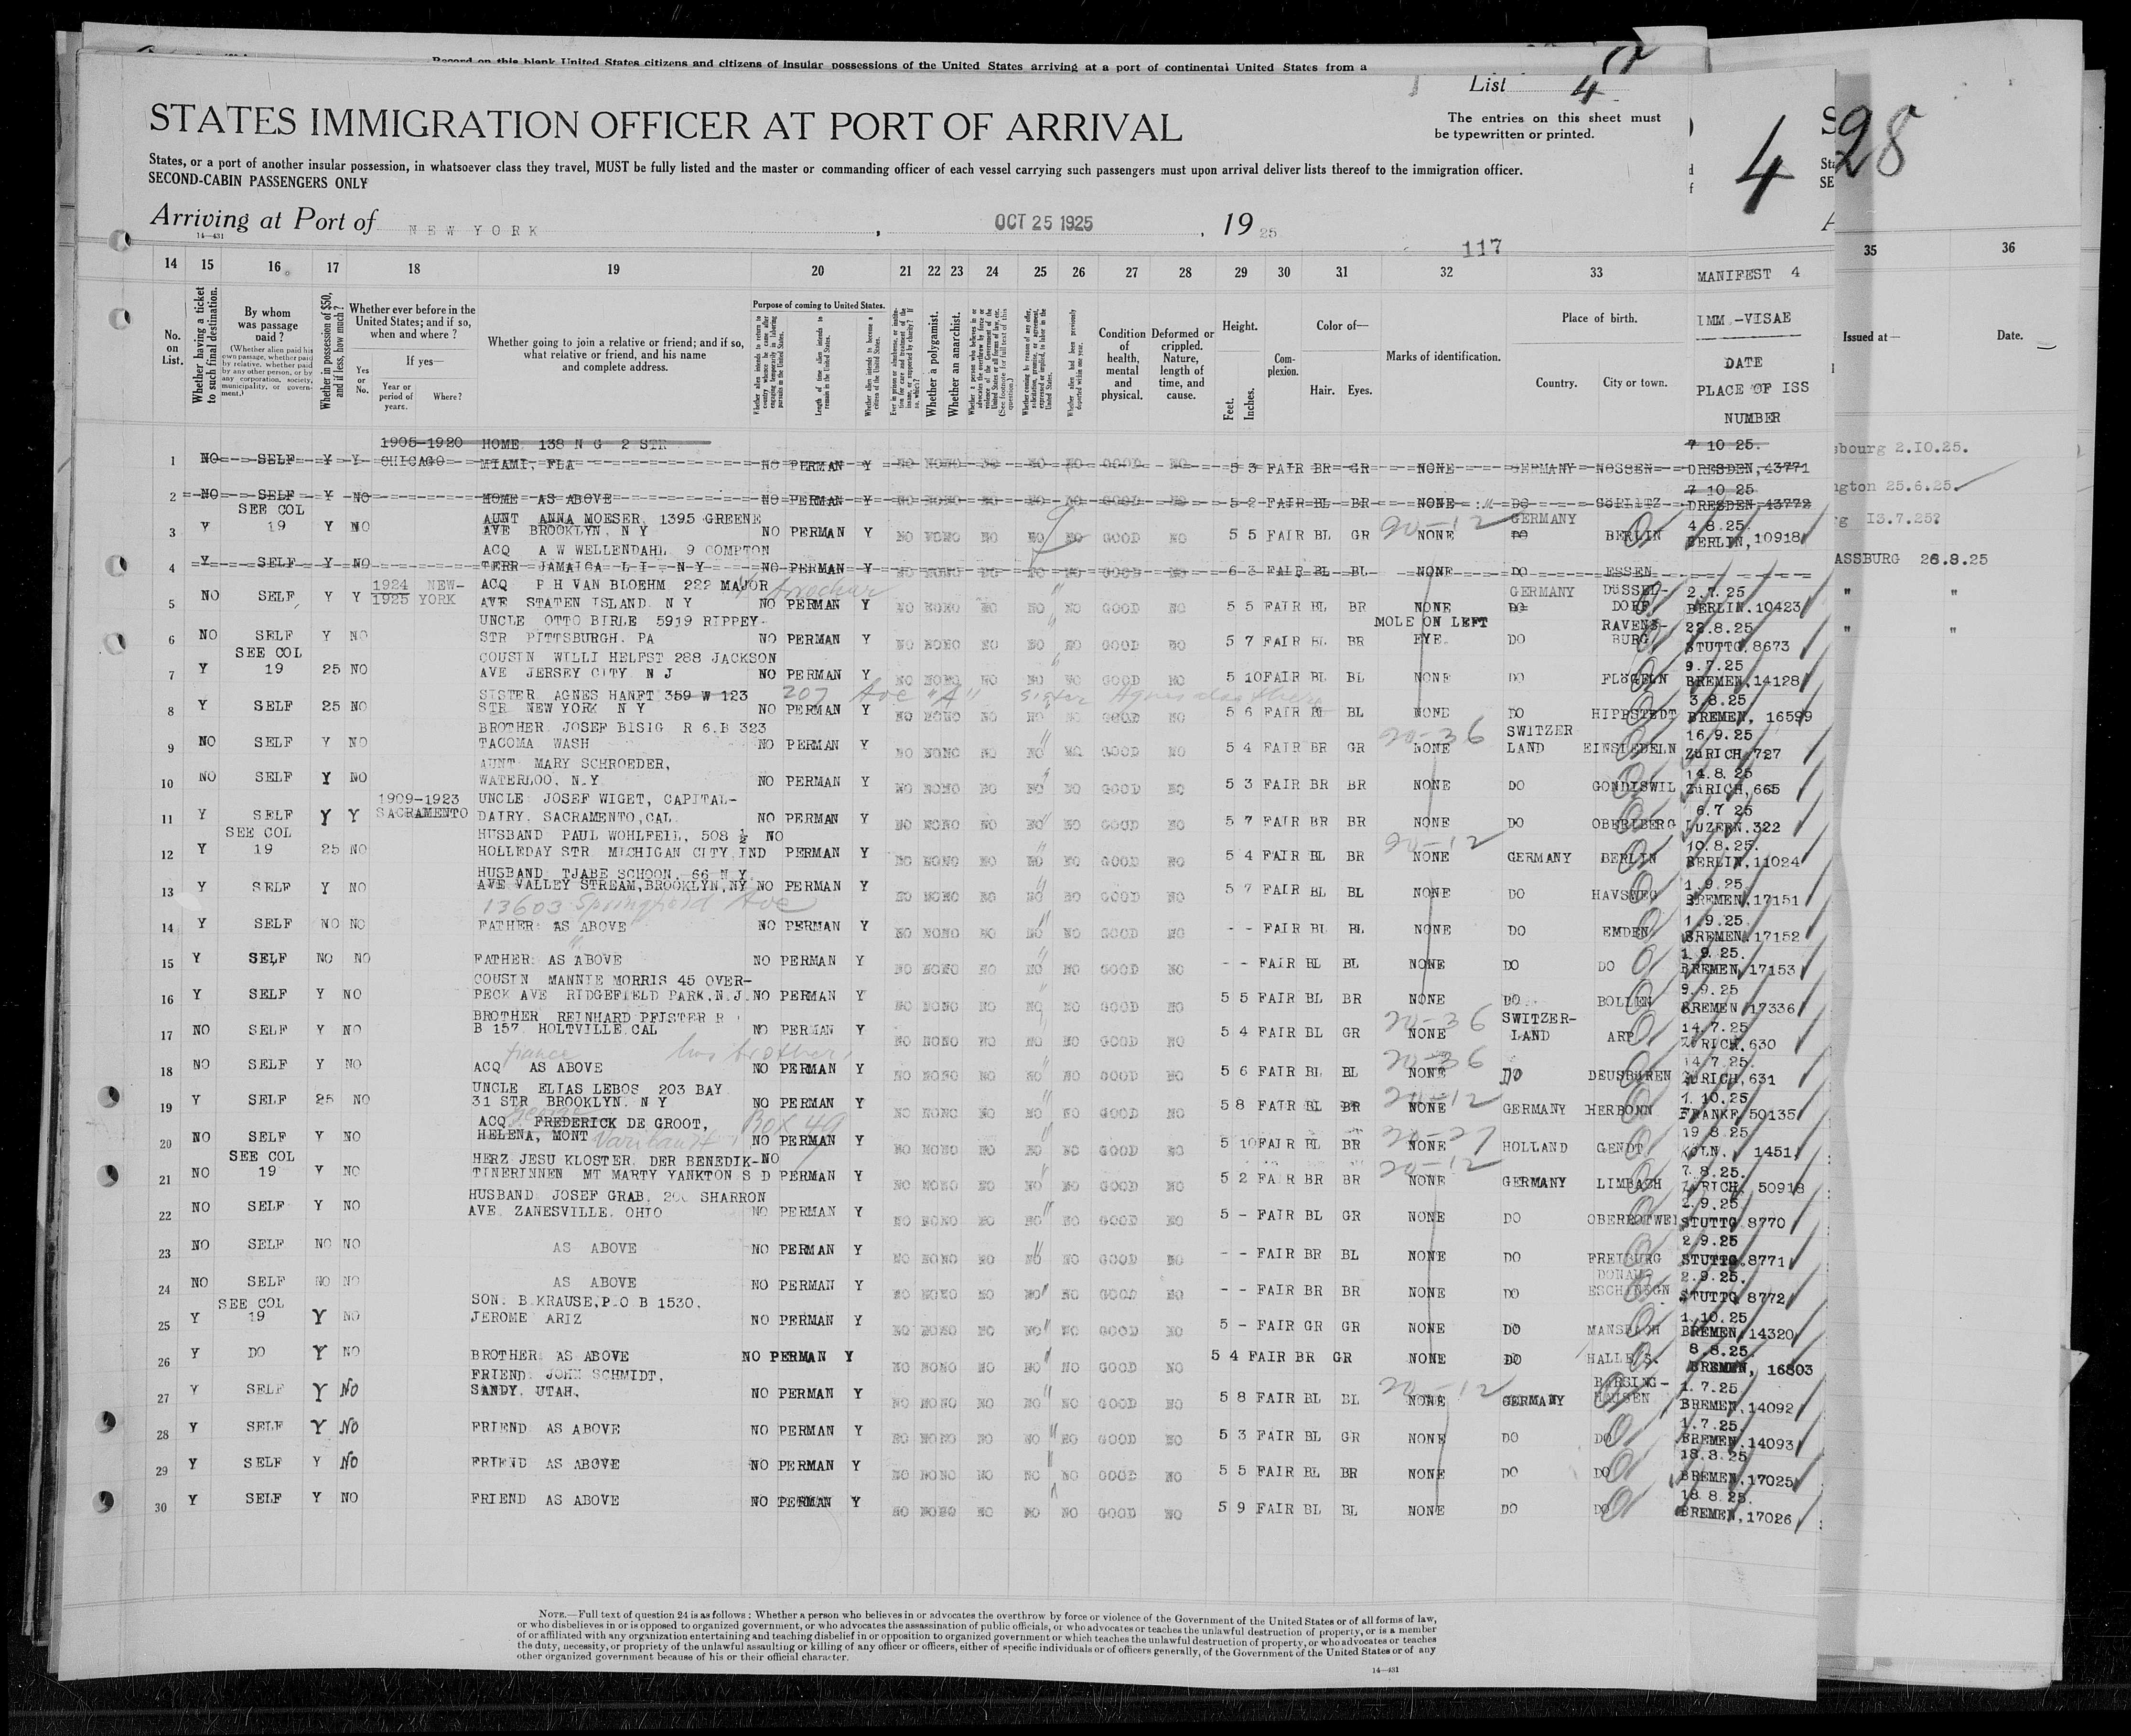 Record on this blank United States citizens and citizens of insular possessions of the United States arriving at a port of continental United States from a
List 4
STATES IMMIGRATION OFFICER AT PORT OF ARRIVAL
The entries on this sheet must
be typewritten or printed.
4
28
States, or a port of another insular possession, in whatsoever class they travel, MUST be fully listed and the master or commanding officer of each vessel carrying such passengers must upon arrival deliver lists thereof to the immigration officer.
SECOND-CABIN PASSENGERS ONLY
Arriving at Port of NEW YORK, OCT 25 1925, 19 25
14—431
117
14 15 16 17 18 19 20 21 22 23 24 25 26 27 28 29 30 31 32 33 MANIFEST 4 35 36
No. on List.
Whether having a ticket to such final destination.
By whom was passage paid?
(Whether alien paid his own passage, whether paid by relative, whether paid by any other person, or by any corporation, society, municipality, or government.)
Whether in possession of $50, and if less, how much?
Whether ever before in the United States; and if so, when and where?
Yes or No.
If yes—
Year or period of years.
Where?
Whether going to join a relative or friend; and if so, what relative or friend, and his name and complete address.
Purpose of coming to United States.
Whether alien intends to return to country whence he came after engaging temporarily in laboring pursuits in the United States.
Length of time alien intends to remain in the United States.
Whether alien intends to become a citizen of the United States.
Whether a polygamist.
Whether an anarchist.
Condition of health, mental and physical.
Deformed or crippled. Nature, length of time, and cause.
Height.
Feet.
Inches.
Complexion.
Color of—
Hair. Eyes.
Marks of identification.
Place of birth.
Country. City or town.
IMM.-VISAE
DATE
PLACE OF ISS
NUMBER
Issued at—
Date.
1905-1920 HOME 138 N G 2 STR 7 10 25.
1 NO SELF Y Y CHICAGO MIAMI, FLA NO PERMAN Y NO NO NO NO NO NO GOOD NO 5 3 FAIR BR GR NONE GERMANY NOSSEN DRESDEN, 43771
sbourg 2.10.25.
7 10 25
2 NO SELF Y NO HOME AS ABOVE NO PERMAN Y NO NO NO NO NO NO GOOD NO 5 2 FAIR BL BR NONE DO GÖRLITZ DRESDEN, 43772
ngton 25.6.25.
SEE COL AUNT ANNA MOESER, 1395 GREENE 90-12 GERMANY 4.8.25.
3 Y 19 Y NO AVE BROOKLYN, N Y NO PERMAN Y NO NO NO NO NO NO GOOD NO 5 5 FAIR BL GR NONE DO BERLIN BERLIN, 10918
g 13.7.25?
ACQ A W WELLENDAHL 9 COMPTON
4 Y SELF Y NO TERR JAMAICA L I N Y NO PERMAN Y NO NO NO NO NO NO GOOD NO 6 3 FAIR BL BL NONE DO ESSEN
ASSBURG 26.8.25
1924 NEW- ACQ P H VAN BLOEHM 222 MAJOR Arrochar GERMANY DÜSSEL- 2.7.25
5 NO SELF Y Y 1925 YORK AVE STATEN ISLAND N Y NO PERMAN Y NO NO NO NO NO NO GOOD NO 5 5 FAIR BL BR NONE DO DORF BERLIN.10423
" "
UNCLE OTTO BIRLE 5919 RIPPEY- MOLE ON LEFT RAVENS- 22.8.25
6 NO SELF Y NO STR PITTSBURGH, PA NO PERMAN Y NO NO NO NO NO NO GOOD NO 5 7 FAIR BL BR EYE. DO BURG STUTTG.8673
" "
SEE COL COUSIN WILLI HELFST 288 JACKSON 9.7.25
7 Y 19 25 NO AVE JERSEY CITY N J NO PERMAN Y NO NO NO NO NO NO GOOD NO 5 10 FAIR BL BL NONE DO FLÖGELN BREMEN,14128
SISTER AGNES HANFT 359 W 123 207 Ave "A" sister Agnes 3.8.25
8 Y SELF 25 NO STR NEW YORK N Y NO PERMAN Y NO NO NO NO NO NO GOOD NO 5 6 FAIR BL BL NONE DO HIPPSTEDT BREMEN, 16599
BROTHER JOSEF BISIG R 6.B 323 20-36 SWITZER 16.9.25
9 NO SELF Y NO TACOMA WASH NO PERMAN Y NO NO NO NO NO NO GOOD NO 5 4 FAIR BR GR NONE LAND EINSIEDELN ZüRICH,727
AUNT MARY SCHROEDER, 14.8.25
10 NO SELF Y NO WATERLOO, N.Y. NO PERMAN Y NO NO NO NO NO NO GOOD NO 5 3 FAIR BR BR NONE DO GONDISWIL ZüRICH,665
1909-1923 UNCLE JOSEF WIGET, CAPITAL- 6 7 25
11 Y SELF Y Y SACRAMENTO DAIRY, SACRAMENTO,CAL. NO PERMAN Y NO NO NO NO NO NO GOOD NO 5 7 FAIR BR BR NONE DO OBERIBERG LUZERN.322
SEE COL HUSBAND PAUL WOHLFEIL, 508 ½ NO 20-12 10.8.25.
12 Y 19 25 NO HOLLEDAY STR MICHIGAN CITY,IND PERMAN Y NO NO NO NO NO NO GOOD NO 5 4 FAIR BL BR NONE GERMANY BERLIN BERLIN,11024
HUSBAND TJABE SCHOON, 66 N.Y. 1.9.25
13 Y SELF Y NO AVE VALLEY STREAM,BROOKLYN,NY NO PERMAN Y NO NO NO NO NO NO GOOD NO 5 7 FAIR BL BL NONE DO BREMEN.17151
13603 Springfield Ave 1.9.25.
14 Y SELF NO NO FATHER: AS ABOVE NO PERMAN Y NO NO NO NO NO NO GOOD NO - - FAIR BL BL NONE DO EMDEN BREMEN.17152
1 9.25.
15 Y SELF NO NO FATHER: AS ABOVE NO PERMAN Y NO NO NO NO NO NO GOOD NO - - FAIR BL BL NONE DO DO BREMEN,17153
COUSIN MANNIE MORRIS 45 OVER- 9.9.25
16 Y SELF Y NO PECK AVE RIDGEFIELD PARK,N.J. NO PERMAN Y NO NO NO NO NO NO GOOD NO 5 5 FAIR BL BR NONE DO BOLLEN BREMEN 17336
BROTHER REINHARD PFISTER R 20-36 SWITZER- 14.7.25
17 NO SELF Y NO B 157 HOLTVILLE,CAL NO PERMAN Y NO NO NO NO NO NO GOOD NO 5 4 FAIR BL GR NONE LAND ARP ZÜRICH,630
fiance 20-36 14.7.25.
18 NO SELF Y NO ACQ AS ABOVE NO PERMAN Y NO NO NO NO NO NO GOOD NO 5 6 FAIR BL BL NONE DO DEUSBÜREN ZÜRICH,631
UNCLE ELIAS LEBOS 203 BAY 20-12 1.10.25
19 Y SELF 25 NO 31 STR BROOKLYN N Y NO PERMAN Y NO NO NO NO NO NO GOOD NO 5 8 FAIR BL BR NONE GERMANY HERBORN FRANKF,50135
ACQ George FREDERICK DE GROOT, Box 49 20-27 19 8.25
20 NO SELF Y NO HELENA, MONT NO PERMAN Y NO NO NO NO NO NO GOOD NO 5 10 FAIR BL BR NONE HOLLAND GENDT KÖLN. 1451
SEE COL HERZ JESU KLOSTER DER BENEDIK- NO 20-12 7.8.25.
21 NO 19 Y NO TINERINNEN MT MARTY YANKTON S D PERMAN Y NO NO NO NO NO NO GOOD NO 5 2 FAIR BR BR NONE GERMANY LIMBACH ZÜRICH, 50918
HUSBAND JOSEF GRAB, 200 SHARRON 2.9.25
22 NO SELF Y NO AVE. ZANESVILLE, OHIO NO PERMAN Y NO NO NO NO NO NO GOOD NO 5 - FAIR BL GR NONE DO OBERROTWEI STUTTG.8770
2 9.25
23 NO SELF NO NO AS ABOVE NO PERMAN Y NO NO NO NO NO NO GOOD NO - - FAIR BR BL NONE DO FREIBURG STUTTG.8771
DONAU- 2.9.25.
24 NO SELF NO NO AS ABOVE NO PERMAN Y NO NO NO NO NO NO GOOD NO - - FAIR BR BR NONE DO ESCHINGEN STUTTG.8772
SEE COL SON: B.KRAUSE,P.O B 1530, 1.10.25
25 Y 19 Y NO JEROME ARIZ NO PERMAN Y NO NO NO NO NO NO GOOD NO 5 - FAIR GR GR NONE DO MANSBACH BREMEN,14320
8.8.25.
26 Y DO Y NO BROTHER: AS ABOVE NO PERMAN Y NO NO NO NO NO NO GOOD NO 5 4 FAIR BR GR NONE DO HALLE S. BREMEN, 16803
FRIEND: JOHN SCHMIDT, 20-12 BARSING- 1.7.25
27 Y SELF Y No SANDY, UTAH, NO PERMAN Y NO NO NO NO NO NO GOOD NO 5 8 FAIR BL BL NONE GERMANY HAUSEN BREMEN.14092
1.7.25.
28 Y SELF Y No FRIEND AS ABOVE NO PERMAN Y NO NO NO NO NO NO GOOD NO 5 3 FAIR BL GR NONE DO DO BREMEN.14093
18.8.25
29 Y SELF Y No FRIEND AS ABOVE NO PERMAN Y NO NO NO NO NO NO GOOD NO 5 5 FAIR BL BR NONE DO DO BREMEN,17025
18 8 25.
30 Y SELF Y NO FRIEND AS ABOVE NO PERMAN Y NO NO NO NO NO NO GOOD NO 5 9 FAIR BL BL NONE DO DO BREMEN,17026
NOTE.—Full text of question 24 is as follows: Whether a person who believes in or advocates the overthrow by force or violence of the Government of the United States or of all forms of law,
or who disbelieves in or is opposed to organized government, or who advocates the assassination of public officials, or who advocates or teaches the unlawful destruction of property, or is a member
of or affiliated with any organization entertaining and teaching disbelief in or opposition to organized government or which teaches the unlawful destruction of property, or who advocates or teaches
the duty, necessity, or propriety of the unlawful assaulting or killing of any officer or officers, either of specific individuals or of officers generally, of the Government of the United States or of any
other organized government because of his or their official character.
14—431